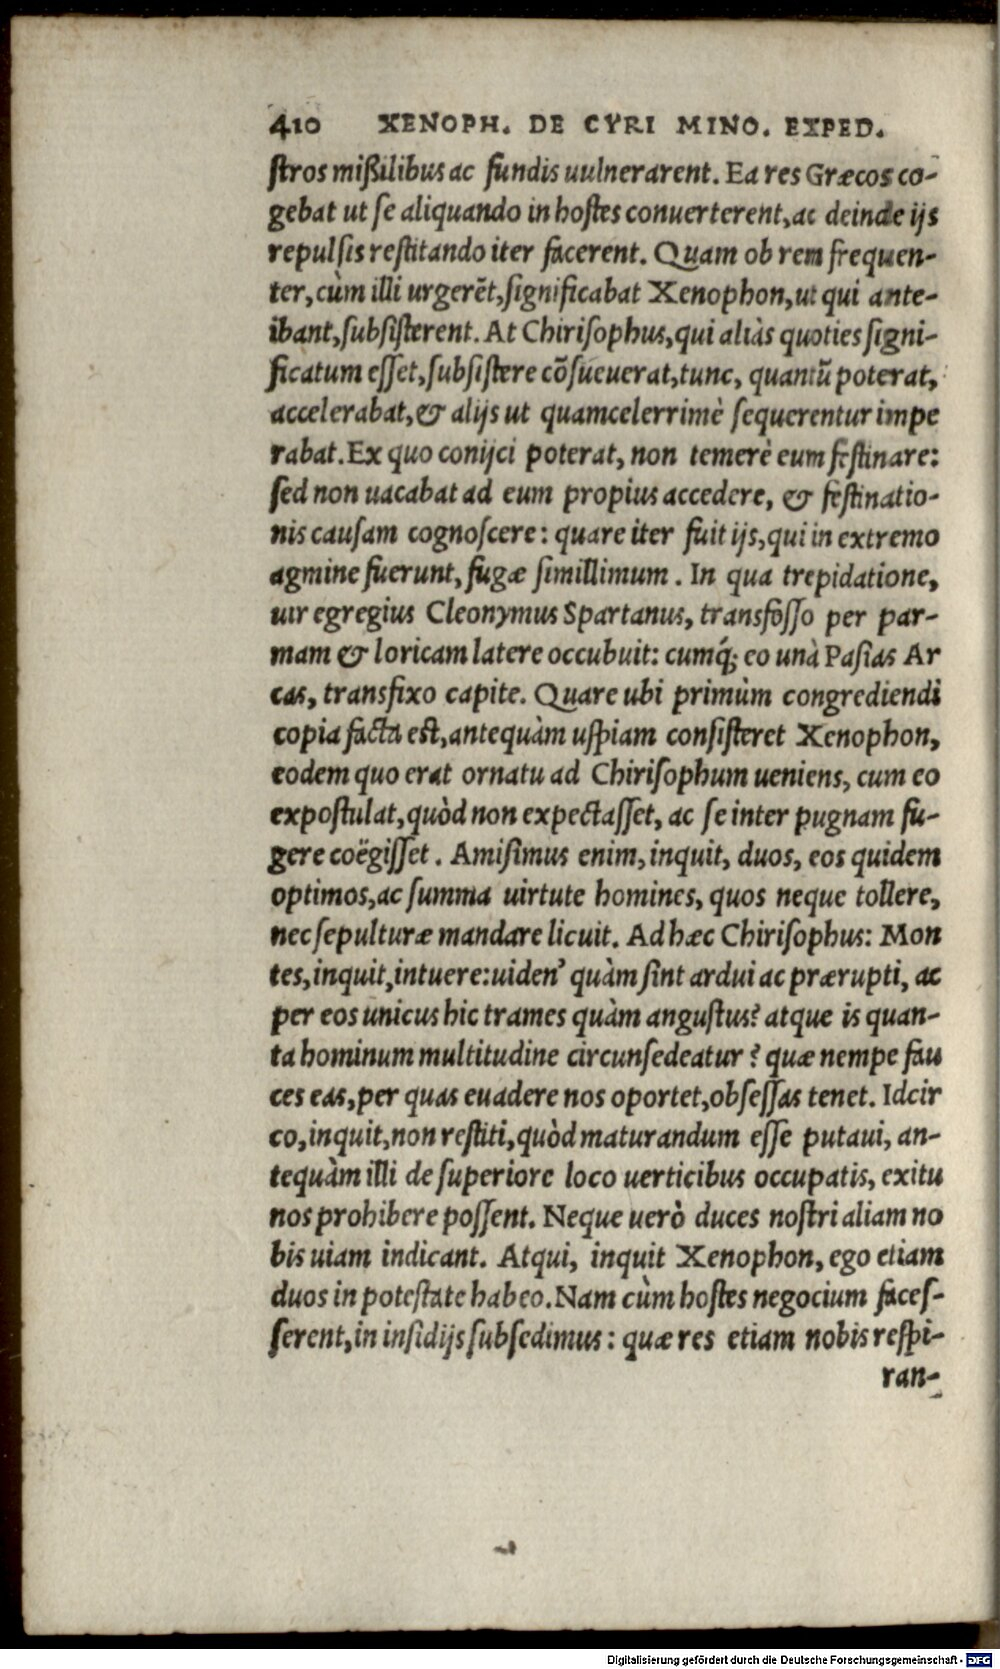 410 XENOPH. DE CYRI MINO. EXPED.
stros mißilibus ac fundis uulnerarent. Ea res Græcos co-
gebat ut se aliquando in hostes conuerterent, ac deinde ijs
repulsis restitando iter facerent. Quam ob rem frequen-
ter, cùm illi urgerēt, significabat Xenophon, ut qui ante-
ibant, subsisterent. At Chirisophus, qui aliàs quoties signi-
ficatum esset, subsistere cōsueuerat, tunc, quantū poterat,
accelerabat, & alijs ut quamcelerrimè sequerentur impe
rabat. Ex quo conijci poterat, non temerè eum festinare:
sed non uacabat ad eum propius accedere, & festinatio-
nis causam cognoscere: quare iter fuit ijs, qui in extremo
agmine fuerunt, fugæ simillimum. In qua trepidatione,
uir egregius Cleonymus Spartanus, transfosso per par-
mam & loricam latere occubuit: cumq́; eo unà Pasias Ar
cas, transfixo capite. Quare ubi primùm congrediendi
copia facta est, antequàm uspiam consisteret Xenophon,
eodem quo erat ornatu ad Chirisophum ueniens, cum eo
expostulat, quòd non expectasset, ac se inter pugnam fu-
gere coëgisset. Amisimus enim, inquit, duos, eos quidem
optimos, ac summa uirtute homines, quos neque tollere,
nec sepulturæ mandare licuit. Ad hæc Chirisophus: Mon
tes, inquit, intuere: uiden' quàm sint ardui ac prærupti, ac
per eos unicus hic trames quàm angustus? atque is quan-
ta hominum multitudine circunsedeatur? quæ nempe fau
ces eas, per quas euadere nos oportet, obsessas tenet. Idcir
co, inquit, non restiti, quòd maturandum esse putaui, an-
tequàm illi de superiore loco uerticibus occupatis, exitu
nos prohibere possent. Neque uerò duces nostri aliam no
bis uiam indicant. Atqui, inquit Xenophon, ego etiam
duos in potestate habeo. Nam cùm hostes negocium faces-
serent, in insidijs subsedimus: quæ res etiam nobis respi-
ran-
Digitalisierung gefördert durch die Deutsche Forschungsgemeinschaft - DFG